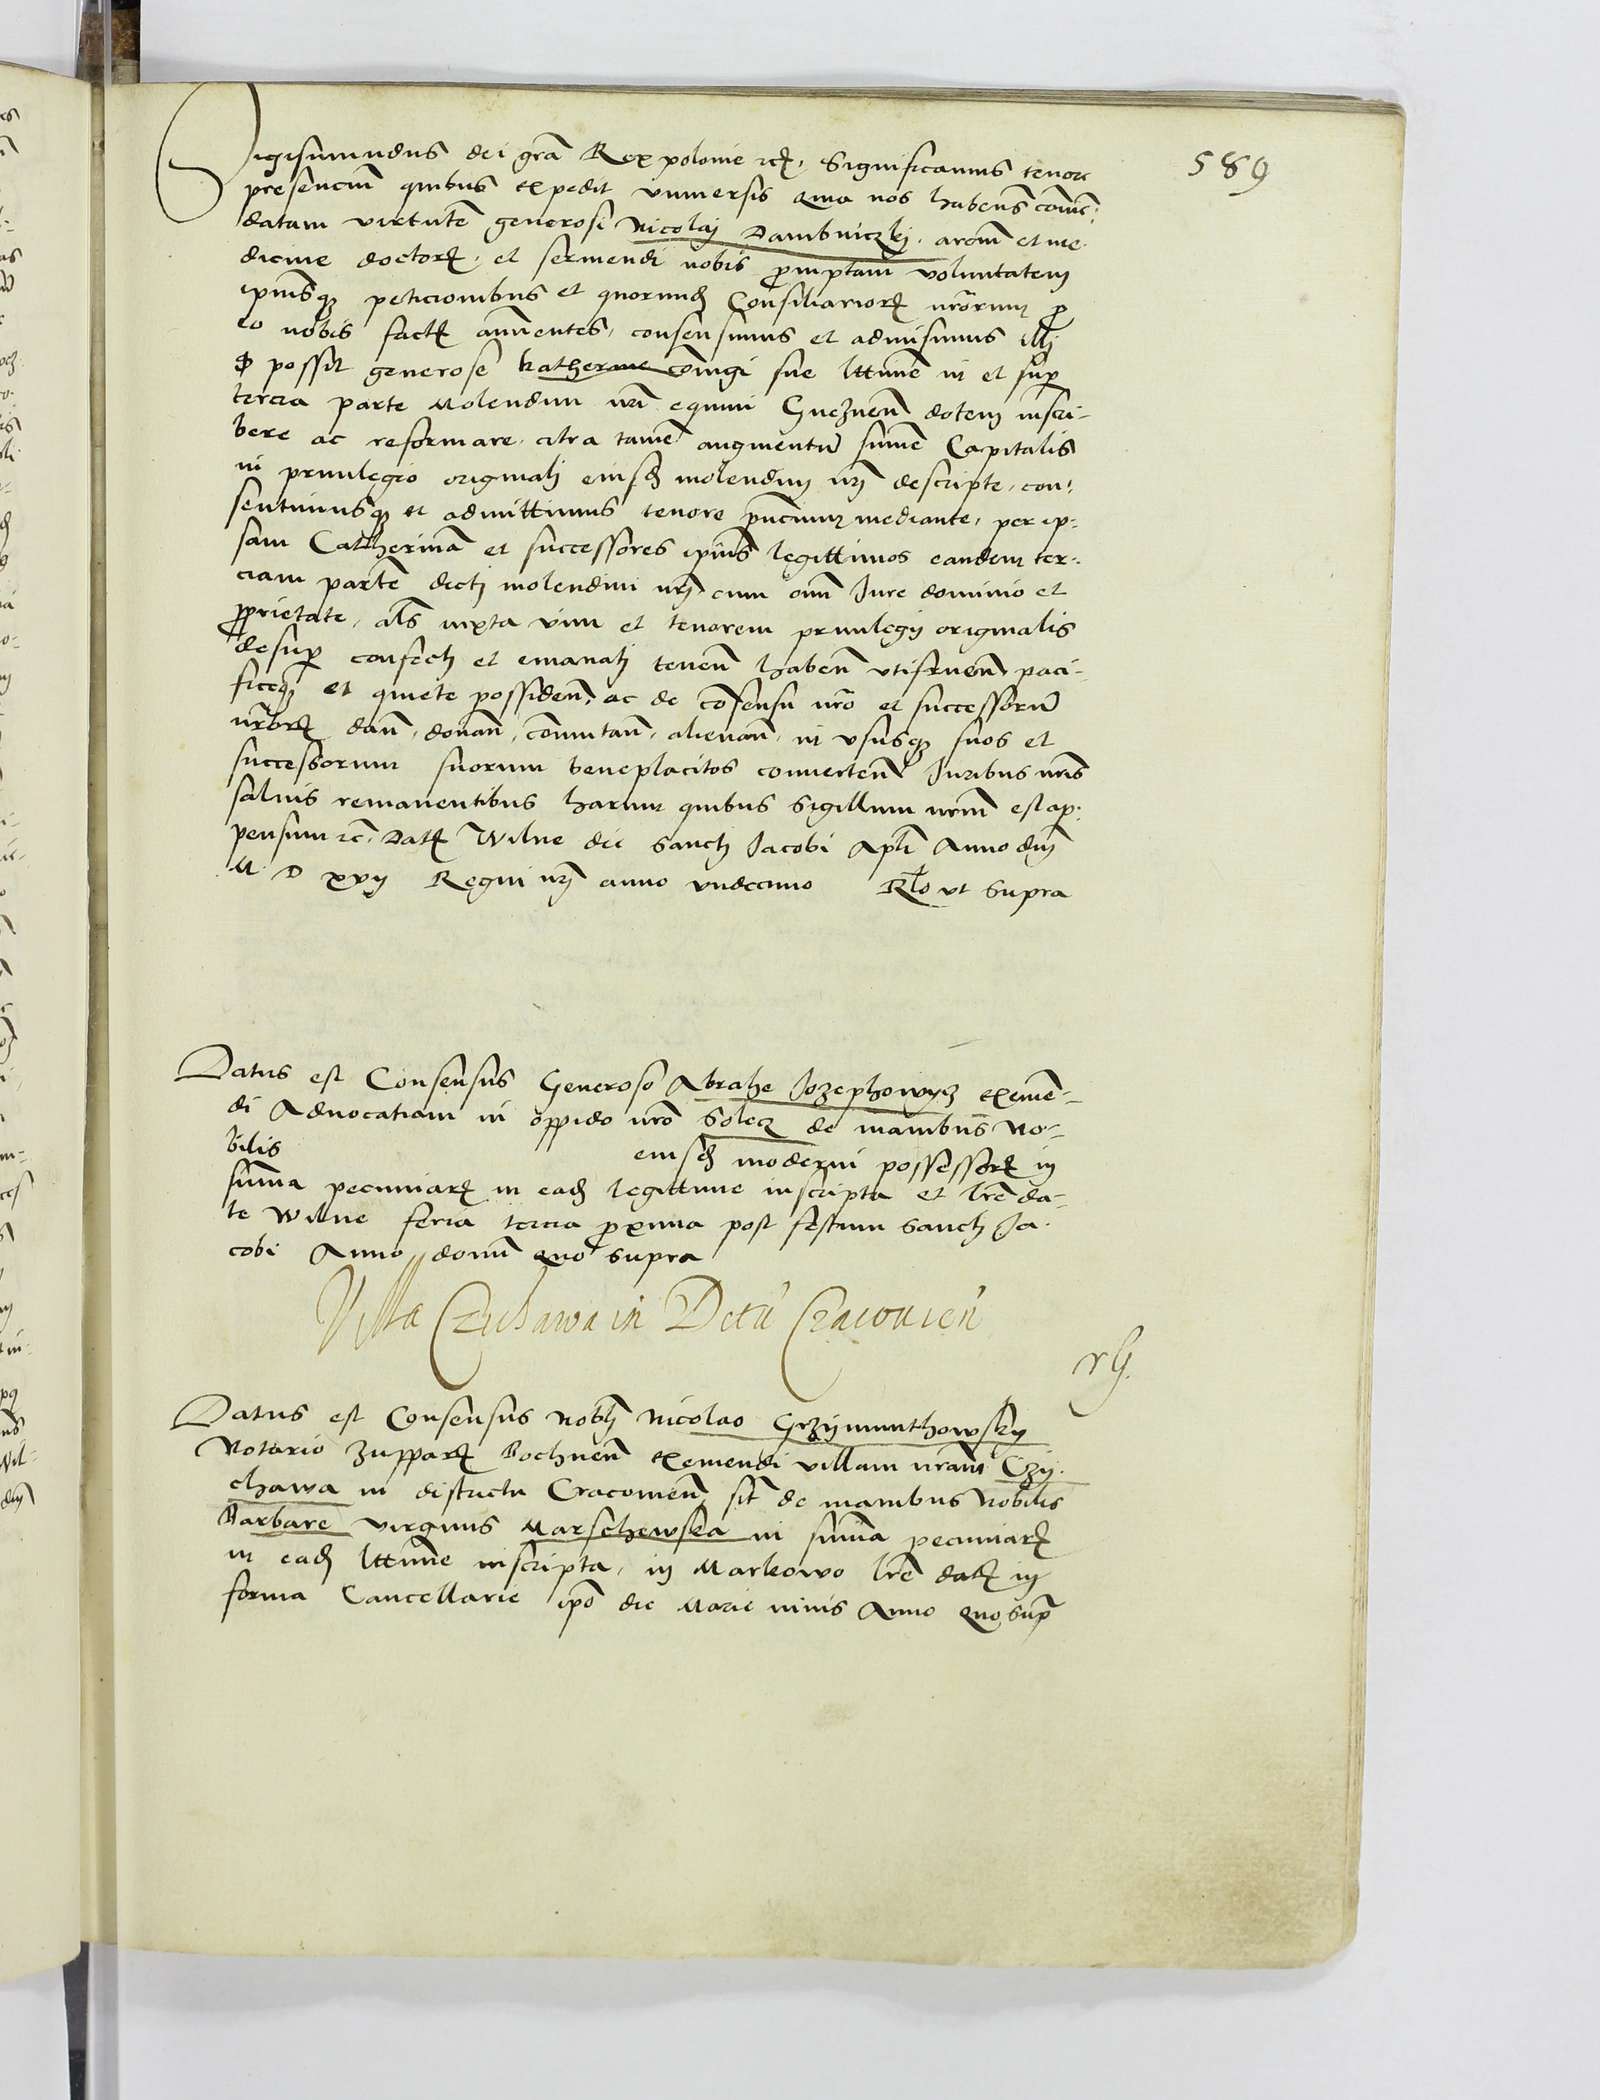 589
Sigismundus dei gra Rex polonie etc. Significamus tenore
presencium quibus expedit vniversis Quia nos habens com̄en-
datam virtutē generosi Nicolaj Dambniczkj. arciū et me-
dicine doctoris. et seruiendi nobis promptam voluntatem
ipiusq peticionibus et quorund Consiliarior nrorum pro
eo nobis fact annuentes, consensimus et admisimus illj
q possit generose Katherine coniugi sue lttime in et super
tercia parte Molendini nri equini Gneznen dotem inscri-
bere ac reformare. citra tamē augmentū sum̄e Capitalis
in priuilegio originalj eiusd molendinj nrj descripte, con-
sentimusq et admittimus tenore pncium mediante, per ip-
sam Catherinā et successores ipius legittimos eandem ter-
ciam partē dictj molendini nrj cum omi Iure dominio et
proprietate. als iuxta vim et tenorem priuilegij originalis
desuper confectj et emanatj tenen haben vtifruen paci-
ficeq et quiete possiden, ac de consensu nro et successorū
nror dan, donan, comutan, alienan, in vsusq suos et
successorum suorum beneplacitos conuerten Iuribus nris
saluis remanentibus harum quibus Sigillum nrm est ap-
pensum etc. Dat Wilne die Sanctj Iacobi Apli Anno dnj
M D xvij Regni nrj anno vndecimo Rlo vt supra
Datus est Consensus Generoso Abrahe Iozephowycz eximen-
di Aduocatiam in oppido nro Solecz de manibus No-
bilis eiusd moderni possessor in
sum̄a pecuniar in ead legittime inscripta et lre da-
te Wilne feria tercia proxima post festum Sanctj Ia-
cobi Anno domi quo supra
Villa Czichawa in Dctu Cracouien
rG.
Datus est Consensus Noblj Nicolao Grzÿmunthowsky
Notario Zuppar Bochnen exemendi villam nram Czÿ-
chawa in districtu Cracouien sit de manibus Nobilis
Barbare virginis Marschewska in sum̄a pecuniar
in ead lttime inscripta, in Markowo lre dat in
forma Cancellarie ipo die Marie niuis Anno quo supra